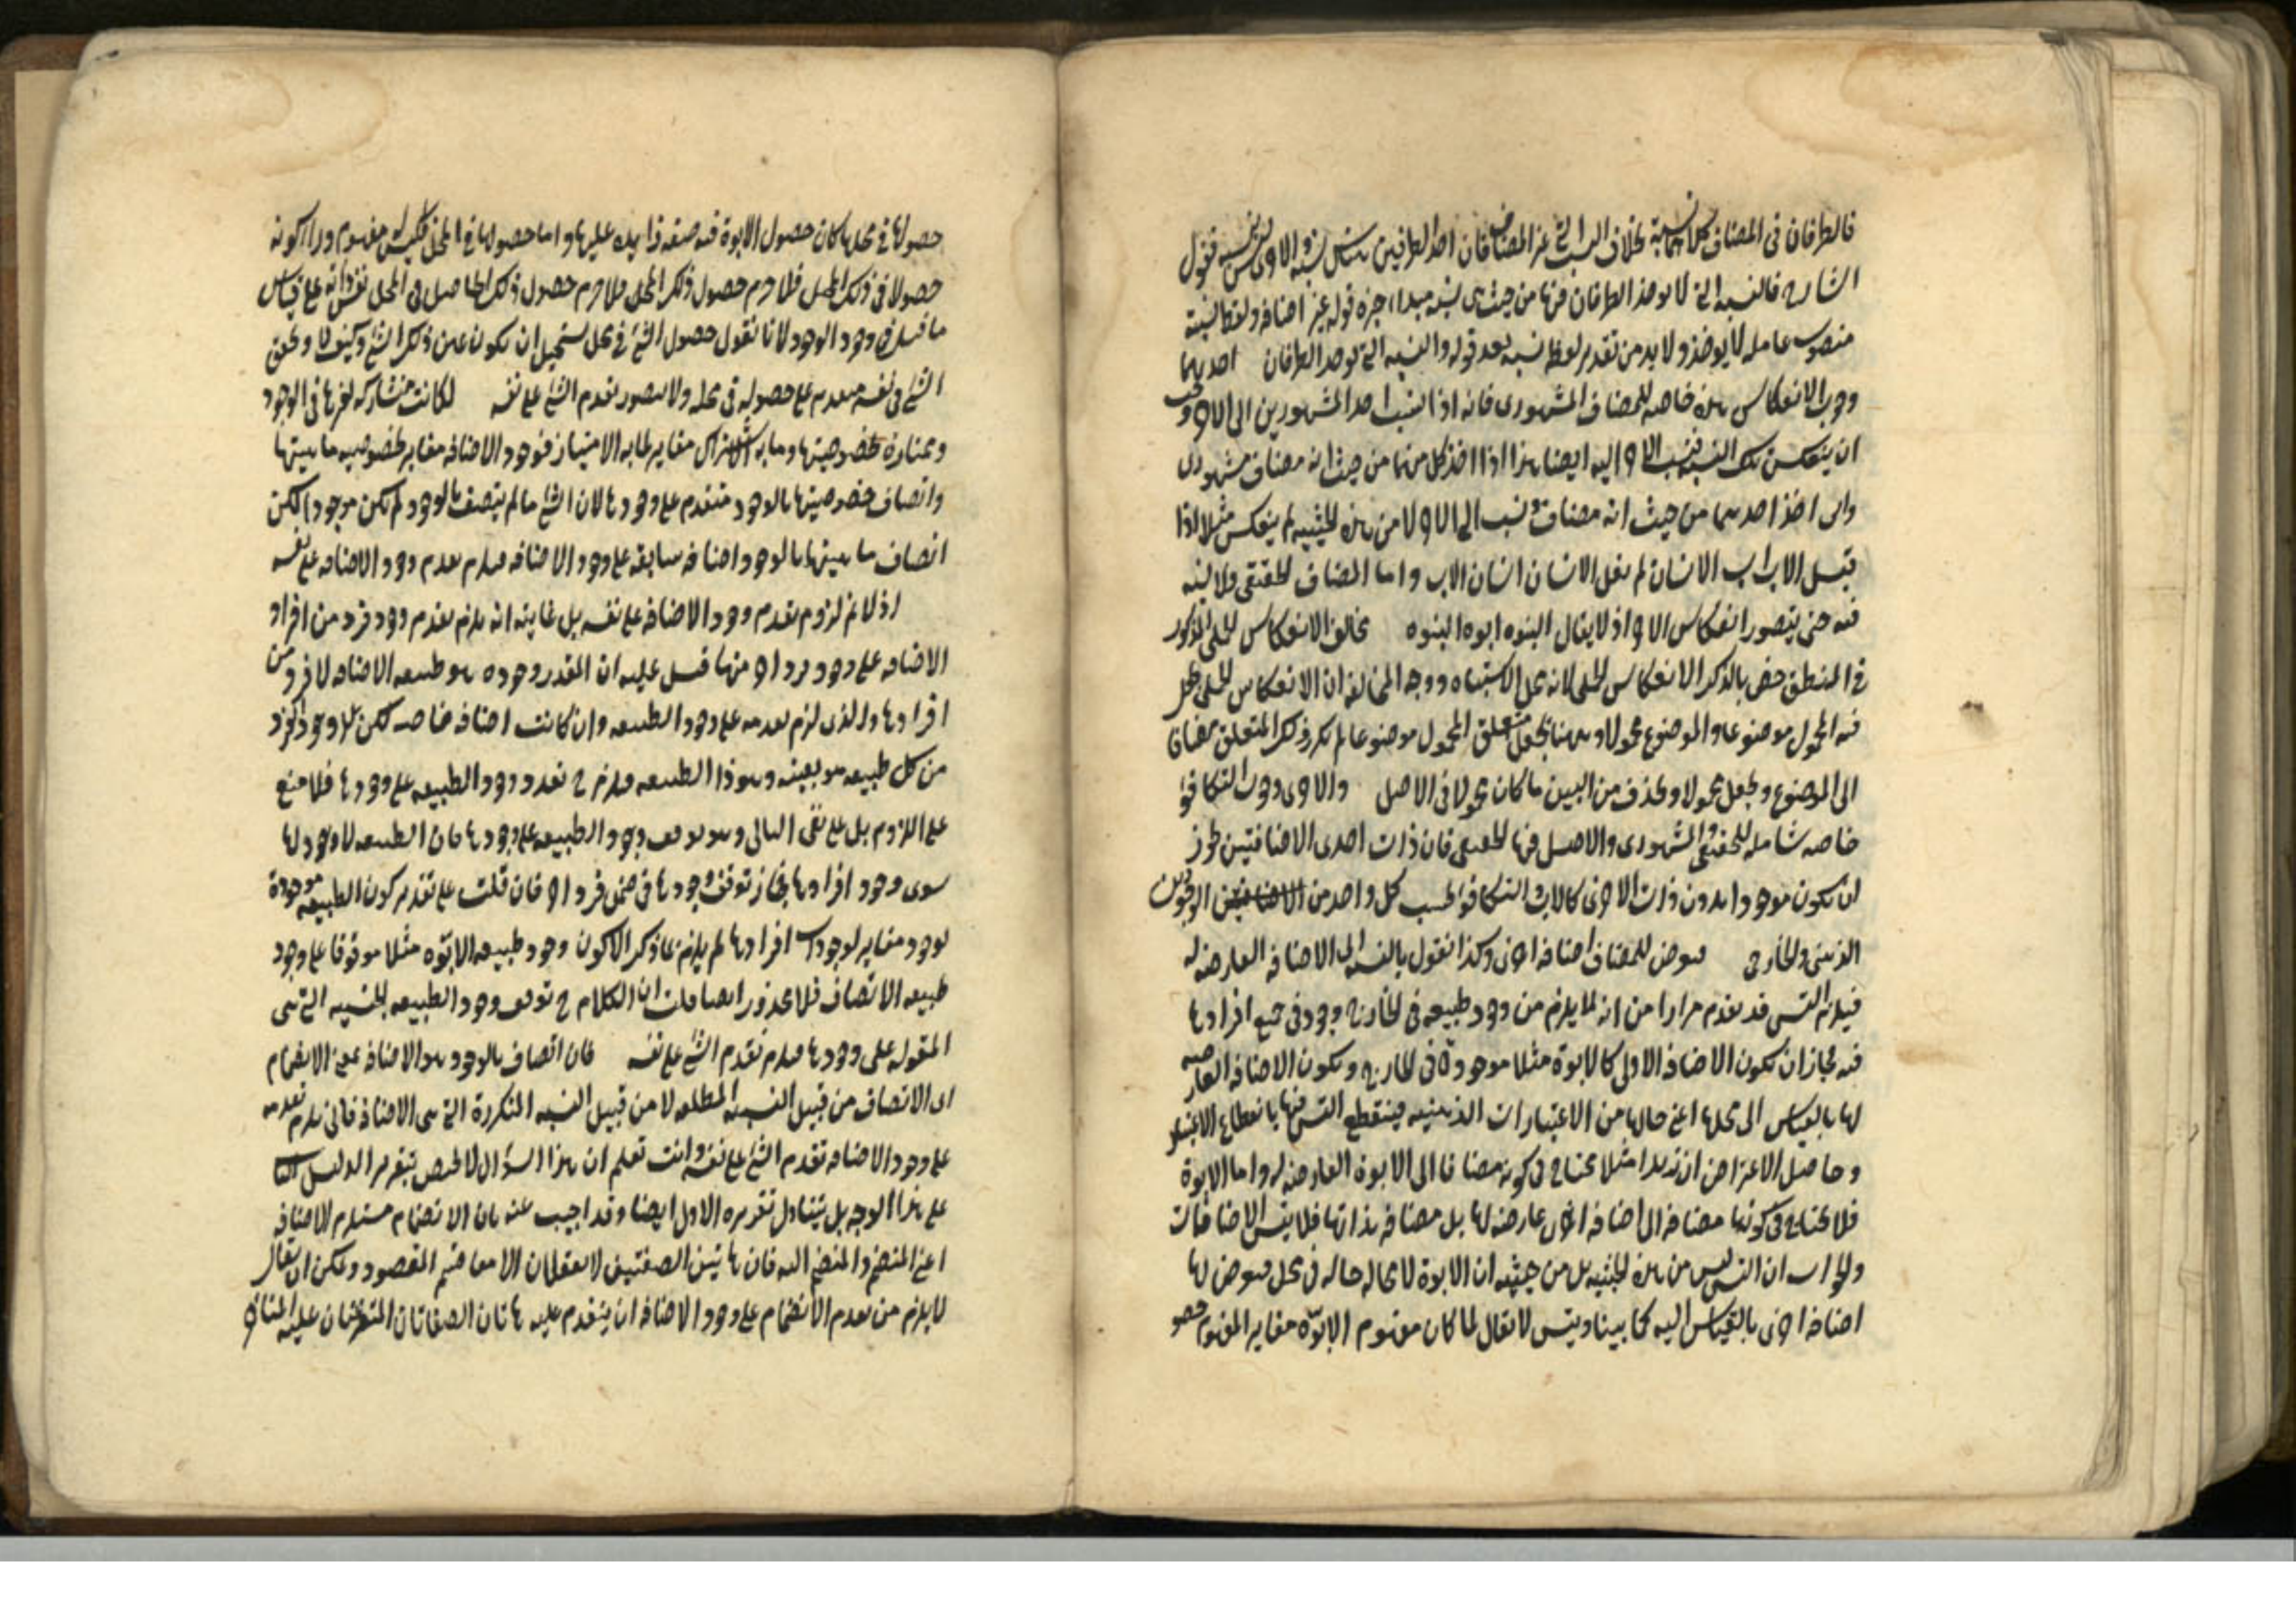 فالطرفان فى المضاف كلاهما نسبة بخلاف النسب التى غير المضاف فان احد الطرفين
الشارح فالنسبه التى لا يوخذ الطرفان فيها من حيث هى نسبه مبتداء خبره قوله غير اضافه ولفظ نسبة
منصوب عامله لا يوخذ ولا بد من تقدير لفظ نسبه بعد قوله والنسبه التى يوخذ الطرفان احديهما
وجوب الانعكاس هذه خاصه للمضاف المشهورى فانه اذا نسب احد المشهورين الى الاخر وجب
ان ينعكس تلك النسبه فينسب الاخر اليه ايضا هذا اذا اخذ كل منهما من حيث انه مضاف مشهورى
وان اخذ احدهما من حيث انه مضاف ونسب الى الاخر لا من هذه الحيثيه لم ينعكس مثلا اذا
قيل الاب اب الانسان لم يقل الانسان انسان الاب واما المضاف الحقيقى فلا نسبه
فيه حتى يتصور انعكاس الاخر اذ لا يقال البنوه ابوه البنوه يخالف الانعكاس الحملى المذكور
فى المنطق خص بالذكر الانعكاس الحملى لانه محل الاشتباه ووجه المخالفه ان الانعكاس الحملى جعل
فيه المحمول موضوعا والموضوع محمولا وههنا يجعل متعلق المحمول موضوعا لم يكرر ذلك المتعلق مضافا
الى الموضوع ويجعل محمولا ويحذف من البين ما كان محمولا فى الاصل والاخرى وجوب التكافؤ
خاصه شامله للحقيقى والمشهورى والاصل فيها الحقيقى فان ذات احدى الاضافتين يجوز
ان يكون موجودا بدون ذات الاخرى كالاب والتكافؤ بحسب كل واحد من الوجودين
الذهنى والخارجى فيعرض للمضاف اضافه اخرى وكذا نقول بالنسبه الى الاضافه العارضه له
فيلزم التس قد تقدم مرارا من انه لا يلزم من وجود طبيعه فى الخارج وجود جميع افرادها
فيه فجاز ان يكون الاضافه الاولى كالابوة مثلا موجودة فى الخارج ويكون الاضافه العارضه
لها بالقياس الى محلها اعنى حالها من الاعتبارات الذهنيه فينقطع التس فيها بانقطاع الاعتبار
وحاصل الاعتراض ان زيدا مثلا محتاج فى كونه مضافا الى الابوة العارضه له واما الابوة
فلا يحتاج فى كونها مضافه الى اضافه اخرى عارضه لها بل مضافه بذاتها فلا يتس الاضافات
والجواب ان التس ليس من هذه الحيثيه بل من جهة ان الابوة لا محاله حاله فى محل فيعرض لها
اضافه اخرى بالقياس اليه كما بينا ويتس لا يقال لما كان مفهوم الابوّه مغاير المفهوم حصو
حصولها فى محلها كان حصول الابوة فيه صفه زايده عليها واما حصولها فى المحل فليس له مفهوم ورا كونه
حصولا فى ذلك المحل فلا جرم حصول ذلك الحاصل فى المحل نفس ذاته على قياس
ما قيل فى وجود الوجود لانا نقول حصول الشئ فى محل يستحيل ان يكون عين ذلك الشئ وكيف لا وتحقق
الشئ فى نفسه متقدم على حصوله فى محله ولا يتصور تقدم الشئ على نفسه لكانت مشاركه لغيرها فى الوجود
وممتازة بخصوصيتها وما به الاشتراك مغاير لما به الامتياز فوجود الاضافه مغاير لخصوصيه ماهيتها
واتصاف خصوصيتها بالوجود متقدم على وجودها لان الشئ ما لم يتصف بالوجود لم يكن موجودا لكن
اتصاف ماهيتها بالوجود اضافه سابقه على وجود الاضافه فيلزم تقدم وجود الاضافه على نفسه
اذ لا نم لزوم تقدم وجود الاضافه على نفسه بل غايته انه يلزم تقدم وجود فرد من افراد
الاضافه على وجود فرد اخر منها قيل عليه ان المقدر وجوده هو طبيعه الاضافه لا فرد من
افرادها والذى لزم تقدمه على وجود الطبيعه وان كانت اضافه خاصه لكن
من كل طبيعه هو بعينه وجود الطبيعه فيلزم ح تقدم وجود الطبيعه على وجودها فلا منع
على اللزوم بل على نفى التالى وهو توقف وجود الطبيعه على وجودها فان الطبيعه لا وجود لها
سوى وجود افرادها فجاز توقف وجودها فى ضمن فرد اخر فان قلت على تقدير كون الطبيعه موجودة
بوجود مغاير لوجودات افرادها لم يلزم مما ذكر الا كون وجود طبيعه الابوّه مثلا موقوفا على وجود
طبيعه الاتصاف فلا محذور ايضا قلت ان الكلام ح توقف وجود الطبيعه الجنسيه التى هى
المقوله على وجودها فيلزم تقدم الشئ على نفسه فان اتصاف بالوجود هو الاضافه بمعنى الانضمام
اى الاتصاف من قبيل النسبه المطلقه لا من قبيل النسبه المتكررة التى هى الاضافه فانى يلزم تقدمه
على وجود الاضافه تقدم الشئ على نفسه وانت تعلم ان هذا السؤال لا يختص بتقرير الدليل
على هذا الوجه بل يتناول تقريره الاول ايضا وقد اجيب عنه بان الانضمام مستلزم الاضافه
اعنى المنضم والمنضم اليه فان هاتين الصفتين لا يعقلان الا معا فتم المقصود ويمكن ان يقال
لا يلزم من تقدم الانضمام على وجود الاضافه ان يتقدم عليه هاتان الصفتان المتفرعتان عليه